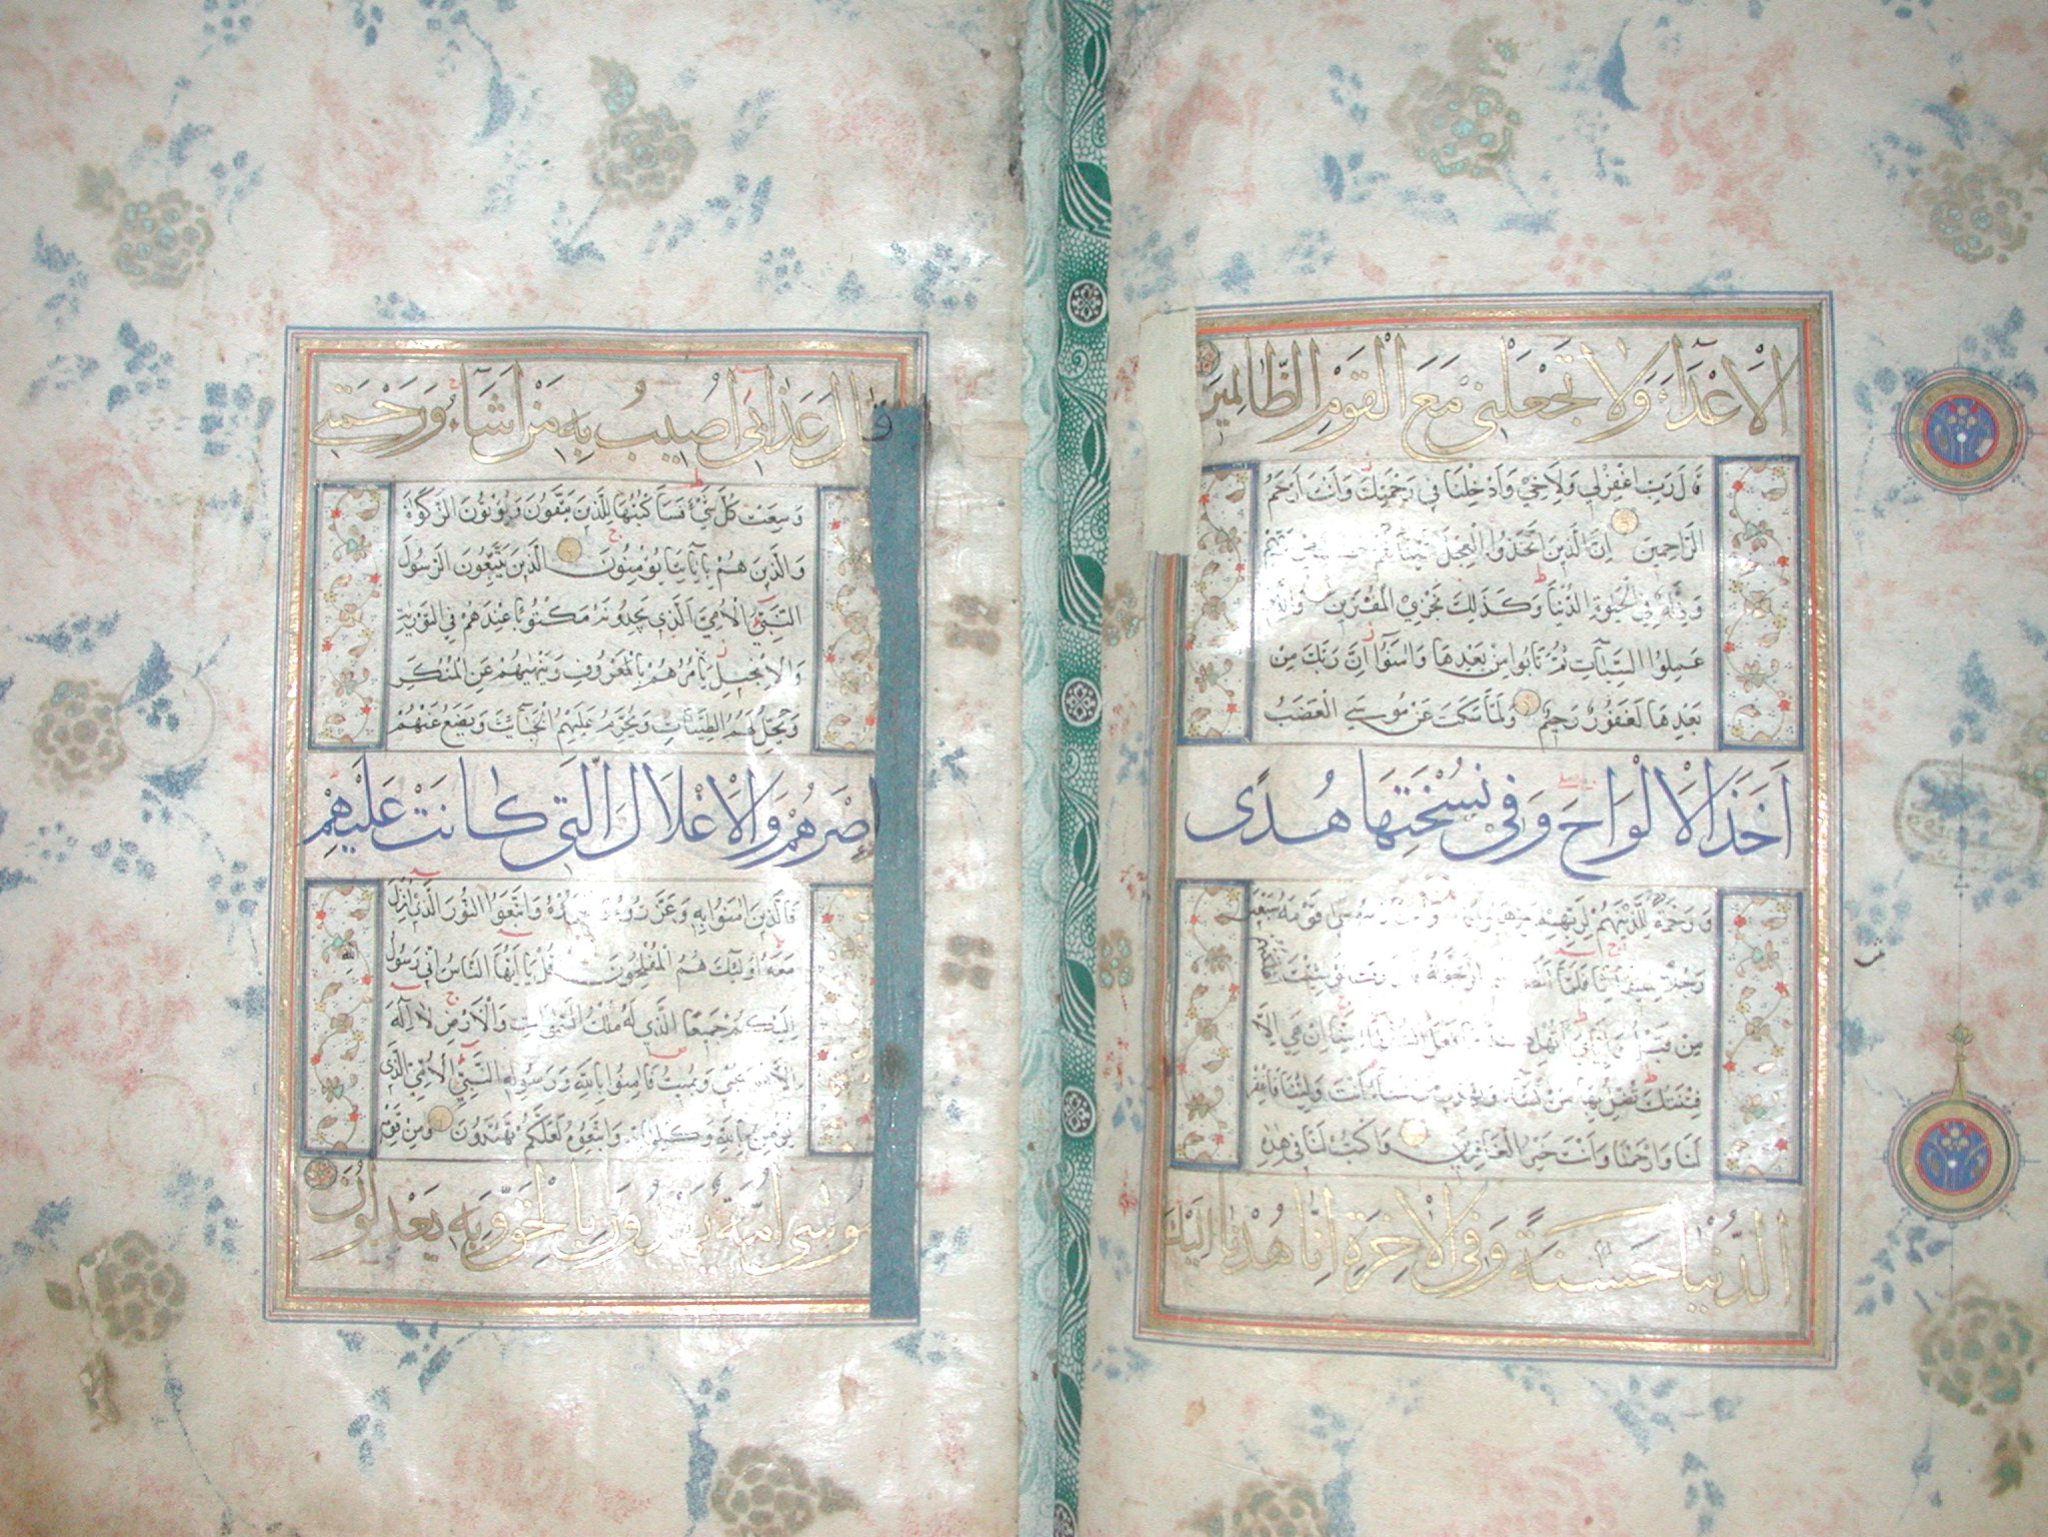 الْاَعْدَآءَ وَلَا تَجْعَلْنِي مَعَ الْقَوْمِ الظَّالِمِينَ
قَالَ رَبِّ اغْفِرْلِي وَلِاَخِي وَاَدْخِلْنَا فِي رَحْمَتِكَ وَاَنْتَ اَرْحَمُ
الرَّاحِمِينَ اِنَّ الَّذِينَ اتَّخَذُوا الْعِجْلَ
وَذِلَّةٌ فِي الْحَيٰوةِ الدُّنْيَا وَكَذٰلِكَ نَجْزِي الْمُفْتَرِينَ وَالَّذِينَ
عَمِلُوا السَّيِّاٰتِ ثُمَّ تَابُوا مِنْ بَعْدِهَا وَاٰمَنُوٓا اِنَّ رَبَّكَ مِنْ
بَعْدِهَا لَغَفُورٌ رَحِيمٌ وَلَمَّا سَكَتَ عَنْ مُوسَى الْغَضَبُ
اَخَذَ الْاَلْوَاحَ وَفِي نُسْخَتِهَا هُدًى
وَرَحْمَةٌ لِلَّذِينَ هُمْ لِرَبِّهِمْ قَوْمَهُ سَبْعِينَ
رَجُلًا لِمِيقَاتِنَا فَلَمَّآ الرَّجْفَةُ شِئْتَ
مِنْ قَبْلُ وَاِيَّايَ اَتُهْلِكُنَا اِنْ هِيَ اِلَّا
فِتْنَتُكَ تُضِلُّ بِهَا مَنْ تَشَآءُ اَنْتَ وَلِيُّنَا فَاغْفِرْ
لَنَا وَارْحَمْنَا وَاَنْتَ خَيْرُ الْغَافِرِينَ وَاكْتُبْ لَنَا فِي هٰذِهِ
الدُّنْيَا حَسَنَةً وَفِي الْاٰخِرَةِ اِنَّا هُدْنَآ اِلَيْكَ
قَالَ عَذَابِي اُصِيبُ بِهِ مَنْ اَشَآءُ وَرَحْمَتِي
وَسِعَتْ كُلَّ شَيْءٍ فَسَاَكْتُبُهَا لِلَّذِينَ يَتَّقُونَ وَيُؤْتُونَ الزَّكٰوةَ
وَالَّذِينَ هُمْ بِاٰيَاتِنَا يُؤْمِنُونَ الَّذِينَ يَتَّبِعُونَ الرَّسُولَ
النَّبِيَّ الْاُمِّيَّ الَّذِي يَجِدُونَهُ مَكْتُوبًا عِنْدَهُمْ فِي التَّوْرٰيةِ
وَالْاِنْجِيلِ يَاْمُرُهُمْ بِالْمَعْرُوفِ وَيَنْهٰيهُمْ عَنِ الْمُنْكَرِ
وَيُحِلُّ لَهُمُ الطَّيِّبَاتِ وَيُحَرِّمُ عَلَيْهِمُ الْخَبَآئِثَ وَيَضَعُ عَنْهُمْ
اِصْرَهُمْ وَالْاَغْلَالَ الَّتِي كَانَتْ عَلَيْهِمْ
فَالَّذِينَ اٰمَنُوا بِهِ وَعَزَّرُوهُ وَنَصَرُوهُ وَاتَّبَعُوا النُّورَ الَّذِي اُنْزِلَ
مَعَهُ اُولٰٓئِكَ هُمُ الْمُفْلِحُونَ قُلْ يَآ اَيُّهَا النَّاسُ اِنِّي رَسُولُ اللّٰهِ
اِلَيْكُمْ جَمِيعًا الَّذِي لَهُ مُلْكُ السَّمٰوَاتِ وَالْاَرْضِ لَآ اِلٰهَ
اِلَّا هُوَ يُحْيِي وَيُمِيتُ فَاٰمِنُوا بِاللّٰهِ وَرَسُولِهِ النَّبِيِّ الْاُمِّيِّ الَّذِي
يُؤْمِنُ بِاللّٰهِ وَكَلِمَاتِهِ وَاتَّبِعُوهُ لَعَلَّكُمْ تَهْتَدُونَ وَمِنْ قَوْمِ
مُوسٰى اُمَّةٌ يَهْدُونَ بِالْحَقِّ وَبِهِ يَعْدِلُونَ